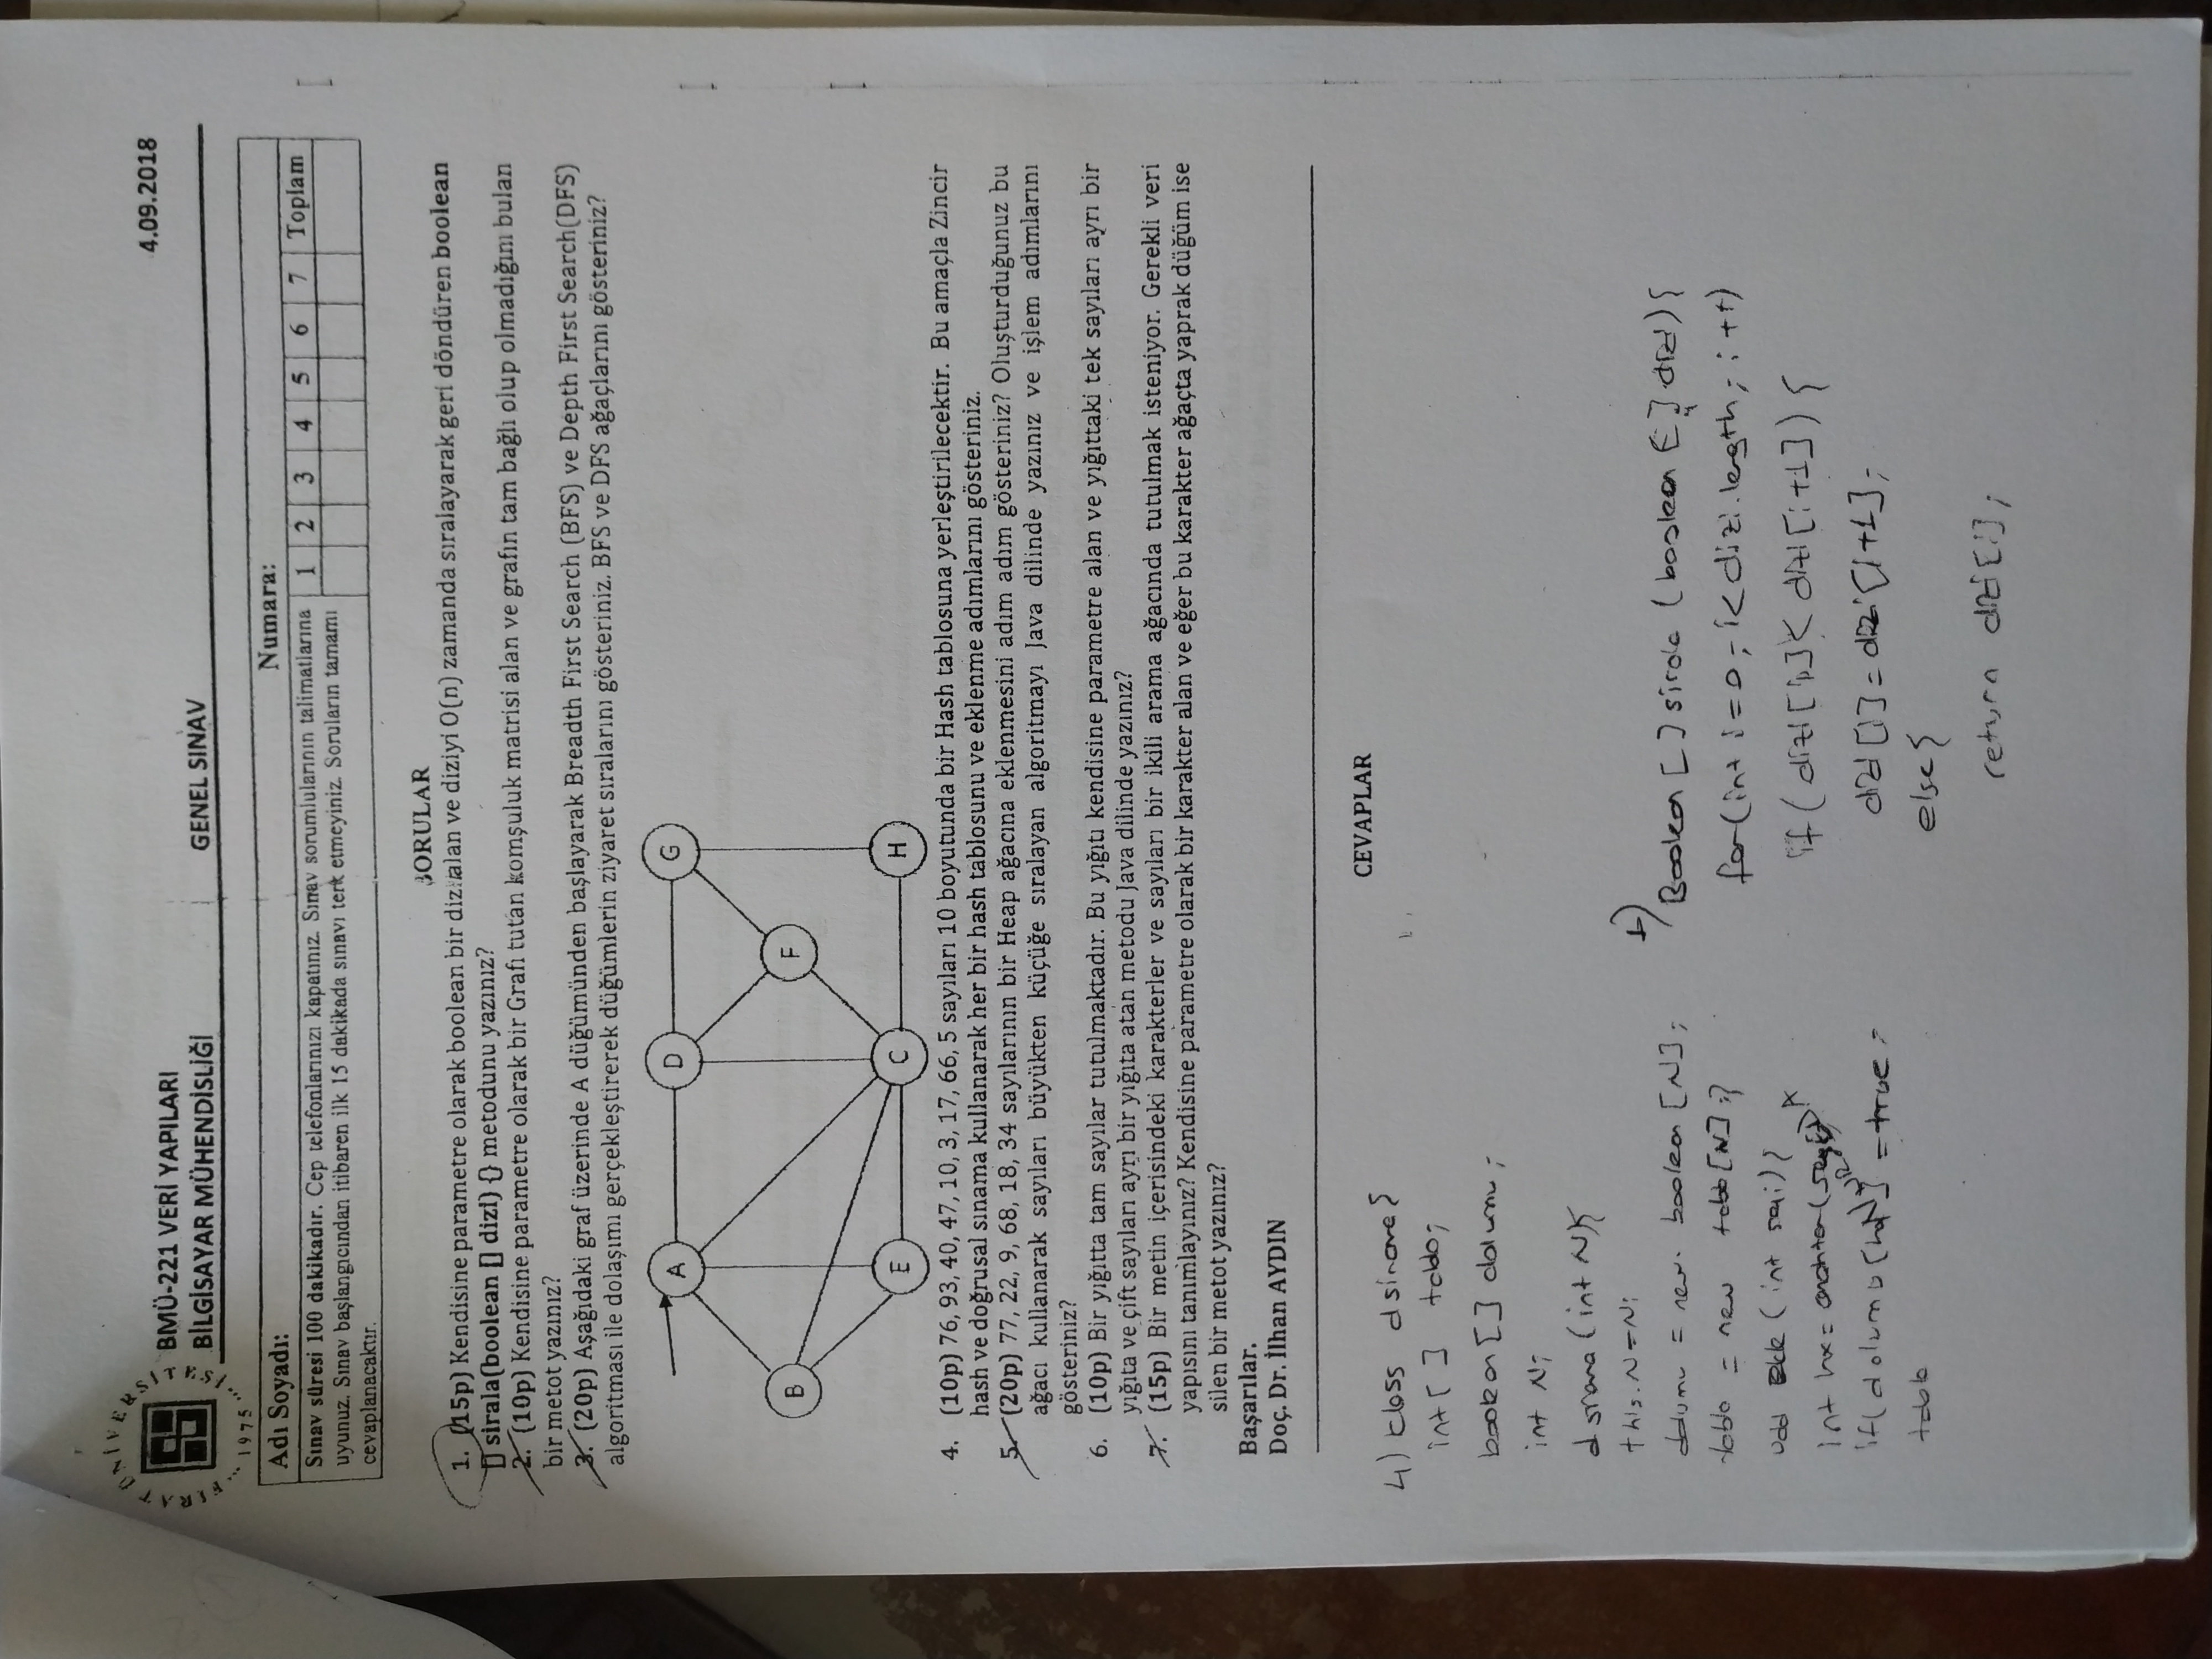 FIRAT ÜNİVERSİTESİ
1975
BMÜ-221 VERİ YAPILARI
BİLGİSAYAR MÜHENDİSLİĞİ
GENEL SINAV
4.09.2018
Adı Soyadı:
Numara:
Sınav süresi 100 dakikadır. Cep telefonlarınızı kapatınız. Sınav sorumlularının talimatlarına
uyunuz. Sınav başlangıcından itibaren ilk 15 dakikada sınavı terk etmeyiniz. Soruların tamamı
cevaplanacaktır.
1 2 3 4 5 6 7 Toplam
SORULAR
1. (15p) Kendisine parametre olarak boolean bir dizi alan ve diziyi O(n) zamanda sıralayarak geri döndüren boolean
[] sirala(boolean [] dizi) {} metodunu yazınız?
2. (10p) Kendisine parametre olarak bir Grafı tutan komşuluk matrisi alan ve grafın tam bağlı olup olmadığını bulan
bir metot yazınız?
3. (20p) Aşağıdaki graf üzerinde A düğümünden başlayarak Breadth First Search (BFS) ve Depth First Search(DFS)
algoritması ile dolaşımı gerçekleştirerek düğümlerin ziyaret sıralarını gösteriniz. BFS ve DFS ağaçlarını gösteriniz?
A D G
B F
E C H
4. (10p) 76, 93, 40, 47, 10, 3, 17, 66, 5 sayıları 10 boyutunda bir Hash tablosuna yerleştirilecektir. Bu amaçla Zincir
hash ve doğrusal sınama kullanarak her bir hash tablosunu ve eklenme adımlarını gösteriniz.
5. (20p) 77, 22, 9, 68, 18, 34 sayılarının bir Heap ağacına eklenmesini adım adım gösteriniz? Oluşturduğunuz bu
ağacı kullanarak sayıları büyükten küçüğe sıralayan algoritmayı Java dilinde yazınız ve işlem adımlarını
gösteriniz?
6. (10p) Bir yığıtta tam sayılar tutulmaktadır. Bu yığıtı kendisine parametre alan ve yığıttaki tek sayıları ayrı bir
yığıta ve çift sayıları ayrı bir yığıta atan metodu Java dilinde yazınız?
7. (15p) Bir metin içerisindeki karakterler ve sayıları bir ikili arama ağacında tutulmak isteniyor. Gerekli veri
yapısını tanımlayınız? Kendisine parametre olarak bir karakter alan ve eğer bu karakter ağaçta yaprak düğüm ise
silen bir metot yazınız?
Başarılar.
Doç. Dr. İlhan AYDIN
CEVAPLAR
4) class dsinama{
int[ ] tablo;
boolean[] dolumu;
int N;
dsinama (int N){
this.N=N;
dolumu = new boolean [N];
tablo = new tablo[N];}
void ekle (int sayi){
int hx=
if( dolumu [hx] = true
tablo
1)
Boolean [ ] sirala ( boolean [ ] dizi ) {
for(int i=0; i<dizi.length; i++)
if ( dizi [i]< dizi [i+1]) {
dizi [i] = dizi [i+1];
else{
return dizi [i];